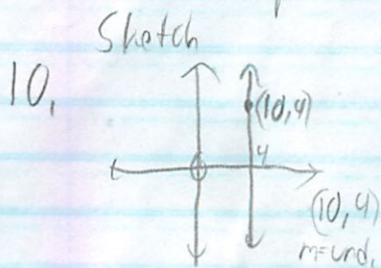 Sketch
10.
(10,4)
4
(10,4)
m=und.